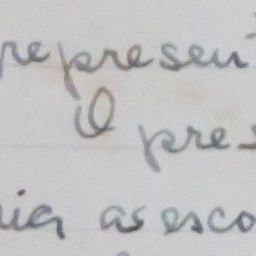 represent
O pres
ria as esco